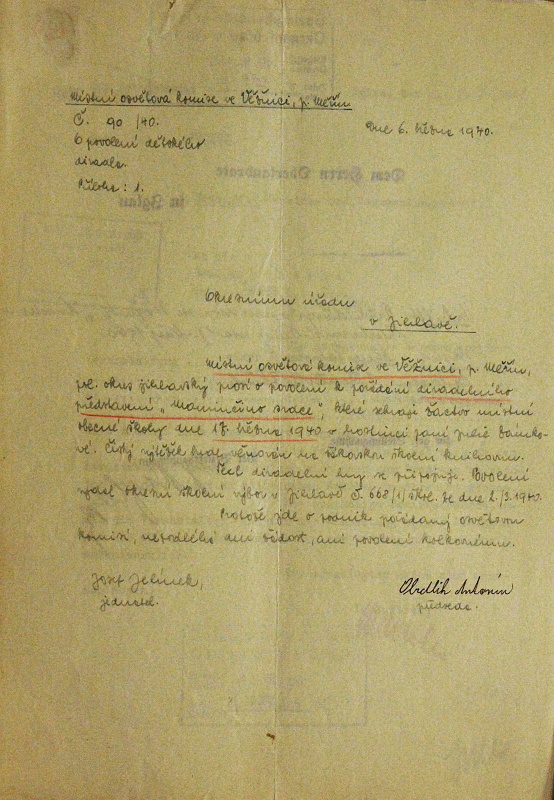 Místní osvětová komise ve Věžnici, p. Měřín
Č. 90 /40.
Dne 6. března 1940.
O povolení dětského
divadla.
Příloha: 1.
Okresnímu úřadu
v Jihlavě.
Místní osvětová komise ve Věžnici, p. Měřín,
pol. okres jihlavský prosí o povolení k pořádání divadelního
představení „Maminčino srdce", které sehraje žactvo místní
obecné školy dne 17. března 1940 v hostinci paní
Čistý výtěžek bude věnován na žákovskou školní knihovnu.
Text divadelní hry se připojuje. Povolení
vydal okresní školní výbor v Jihlavě č. 668/1/ škol. ze dne 2./3. 1940.
Protože jde o podnik pořádaný osvětovou
komisí, nepodléhá ani žádost, ani povolení kolkovnému.
Josef Jelínek,
jednatel.
Obdlih Antonín
předseda.
Dem Herrn Oberlandrate
in Iglau